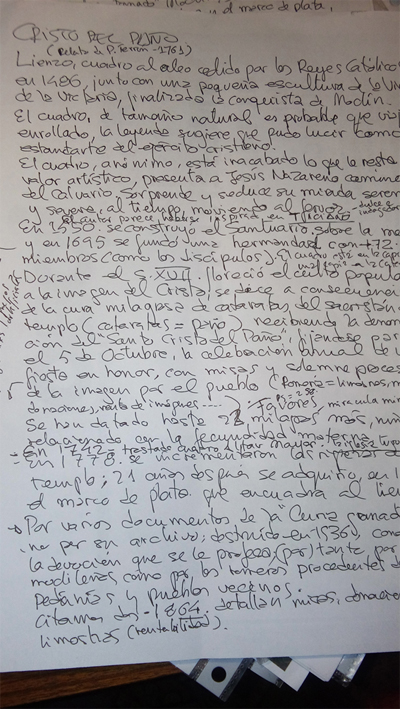 el marco de plata,
CRISTO DEL PAÑO
(Relato de P. Terrón - 1761)
Lienzo, cuadro al oleo cedido por los Reyes Católicos
en 1486, junto con una pequeña escultura de la V
de la Victoria, finalizada la conquista de Moclín.
El cuadro, de tamaño natural es probable que
enrollado, la leyenda sugiere que pudo lucir como
estandarte del ejército cristiano.
El cuadro, anónimo, está inacabado lo que le resta
valor artístico, presenta a Jesús Nazareno camino
del Calvario. Sorprende y seduce su mirada serena
y suave, al tiempo, moviendo al fervor, dulce e
el autor parece haberse inspirado en TIZIANO
En 1550 se construyó el Santuario, sobre la me
y en 1695 se fundó una hermandad con +72
miembros (como los discípulos). El cuadro está en la cap
Durante el s. XVII floreció el culto popula
a la imagen del Cristo, se debe a consecuencia
de la cura milagrosa de cataratas del sacristán
templo (cataratas = paño), recibiendo la denom
ción del Santo Cristo del Paño, fijándose para
el 5 de Octubre, la celebración anual de u
fiesta en honor, con misas y solemne proces
de la imagen por el pueblo (limosnas, m
donaciones, de imágenes....)
Se han datado hasta milagros más,
relacionado con la fecundidad materna
En 1742 - traslado cuadro altar mayor.
En 1778 se incrementaron las
templo; 21 años después se adquiría, en 1
el marco de plata que encuadra al lien
Por varios documentos de la "Curia granad
na por su archivo, destruido en 1536), cono
la devoción que se le profesa (por) tanto, por
modileños como por los romeros procedentes de
pedanías y pueblos vecinos.
citamos dos - 1864. detallan misas, donacio
limosnas (rentabilidad).